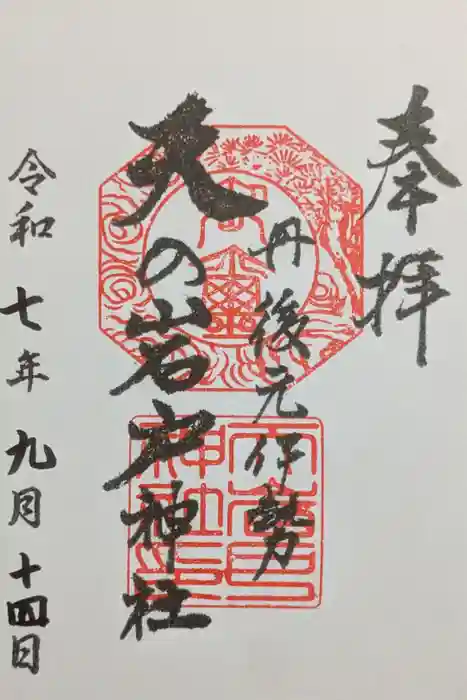 奉拝
丹後元伊勢
天の岩戸神社
令和七年九月十四日